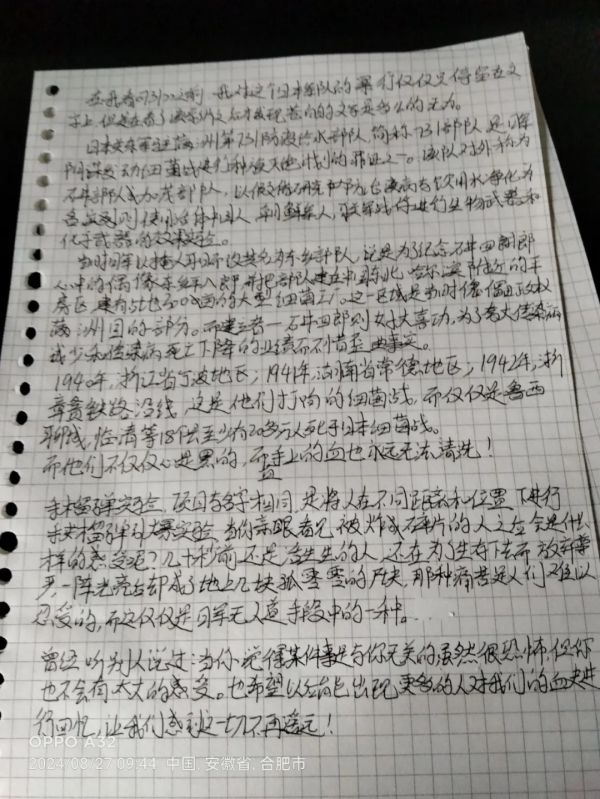 在我看731之前 我对这个日本部队的暴行仅仅只停留在文
字上,但是在看了这案例之后才发现苍白的文字是多么的无力。
日本关东军驻满洲第731防疫给水部队,简称731部队,是日军
阴谋发动细菌战进行种族灭绝计划的罪证之一。该队对外称为
石井部队或加茂部队,以
则使用活体中国人,朝鲜人,联军战俘进行生物武器和
化学武器的效果实验。
部队,说是为了纪念石井四郎
心中的偶像 并把部队建立在中国东北 哈尔滨附近的平
房区,建有占地 的大型细菌工厂。这一区域是当时傀儡政权
满洲国的部分。而建立者—石井四郎则好大喜功,为了夸大传染病
减少和传染病死亡下降的业绩而不惜歪曲事实。
1940年,浙江省宁波地区;1941年,湖南省常德地区;1942年,浙
赣铁路沿线,这是他们打响的细菌战。而仅仅是鲁西
聊城,临清等18个县至少有20多万人死于日本细菌战。
而他们不仅仅心是黑的,而且手上的血也永远无法清洗!
手榴弹实验,项目与名字相同,是将人在不同距离和位置下进行
手榴弹的爆炸实验,当你亲眼看见被炸成碎片的人之后会是什么
样的感受呢?几十秒前还是活生生的人,还在为了生存下去而放弃尊
严,一阵光亮后却成了地上几块孤零零的尸夹,那种痛苦是人们难以
忍受的,而这仅仅是日军无人道手段中的一种。
曾经听别人说过:当你觉得某件事是与你无关的,虽然很恐怖,但你
也不会有太大的感受。也希望以后能出现更多的人对我们的血史进
行回忆,让我们感到这一切不再遥远!
OPPO A32
2024/08/27 09:44 中国, 安徽省, 合肥市